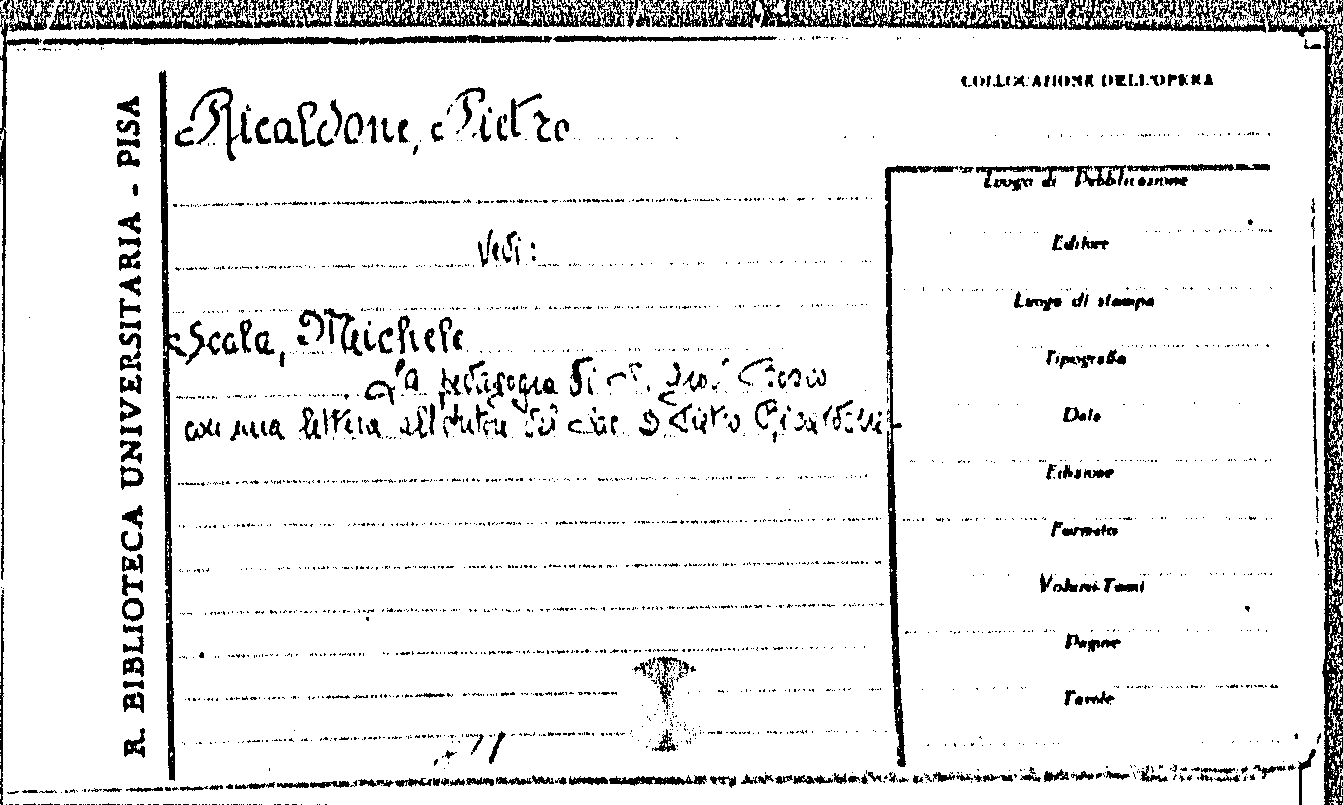 R. BIBLIOTECA UNIVERSITARIA - PISA
COLLOCAZIONE DELL'OPERA
Ricaldone, Pietro
Vedi:
Scala, Meichele
La pedagogia di S. Giov. Bosco
con una lettera all'autore del Sac. D Pietro Ricaldone
Luogo di Pubblicazione
Editore
Luogo di stampa
Tipografia
Data
Edizione
Formato
Volumi-Tomi
Pagine
Tavole